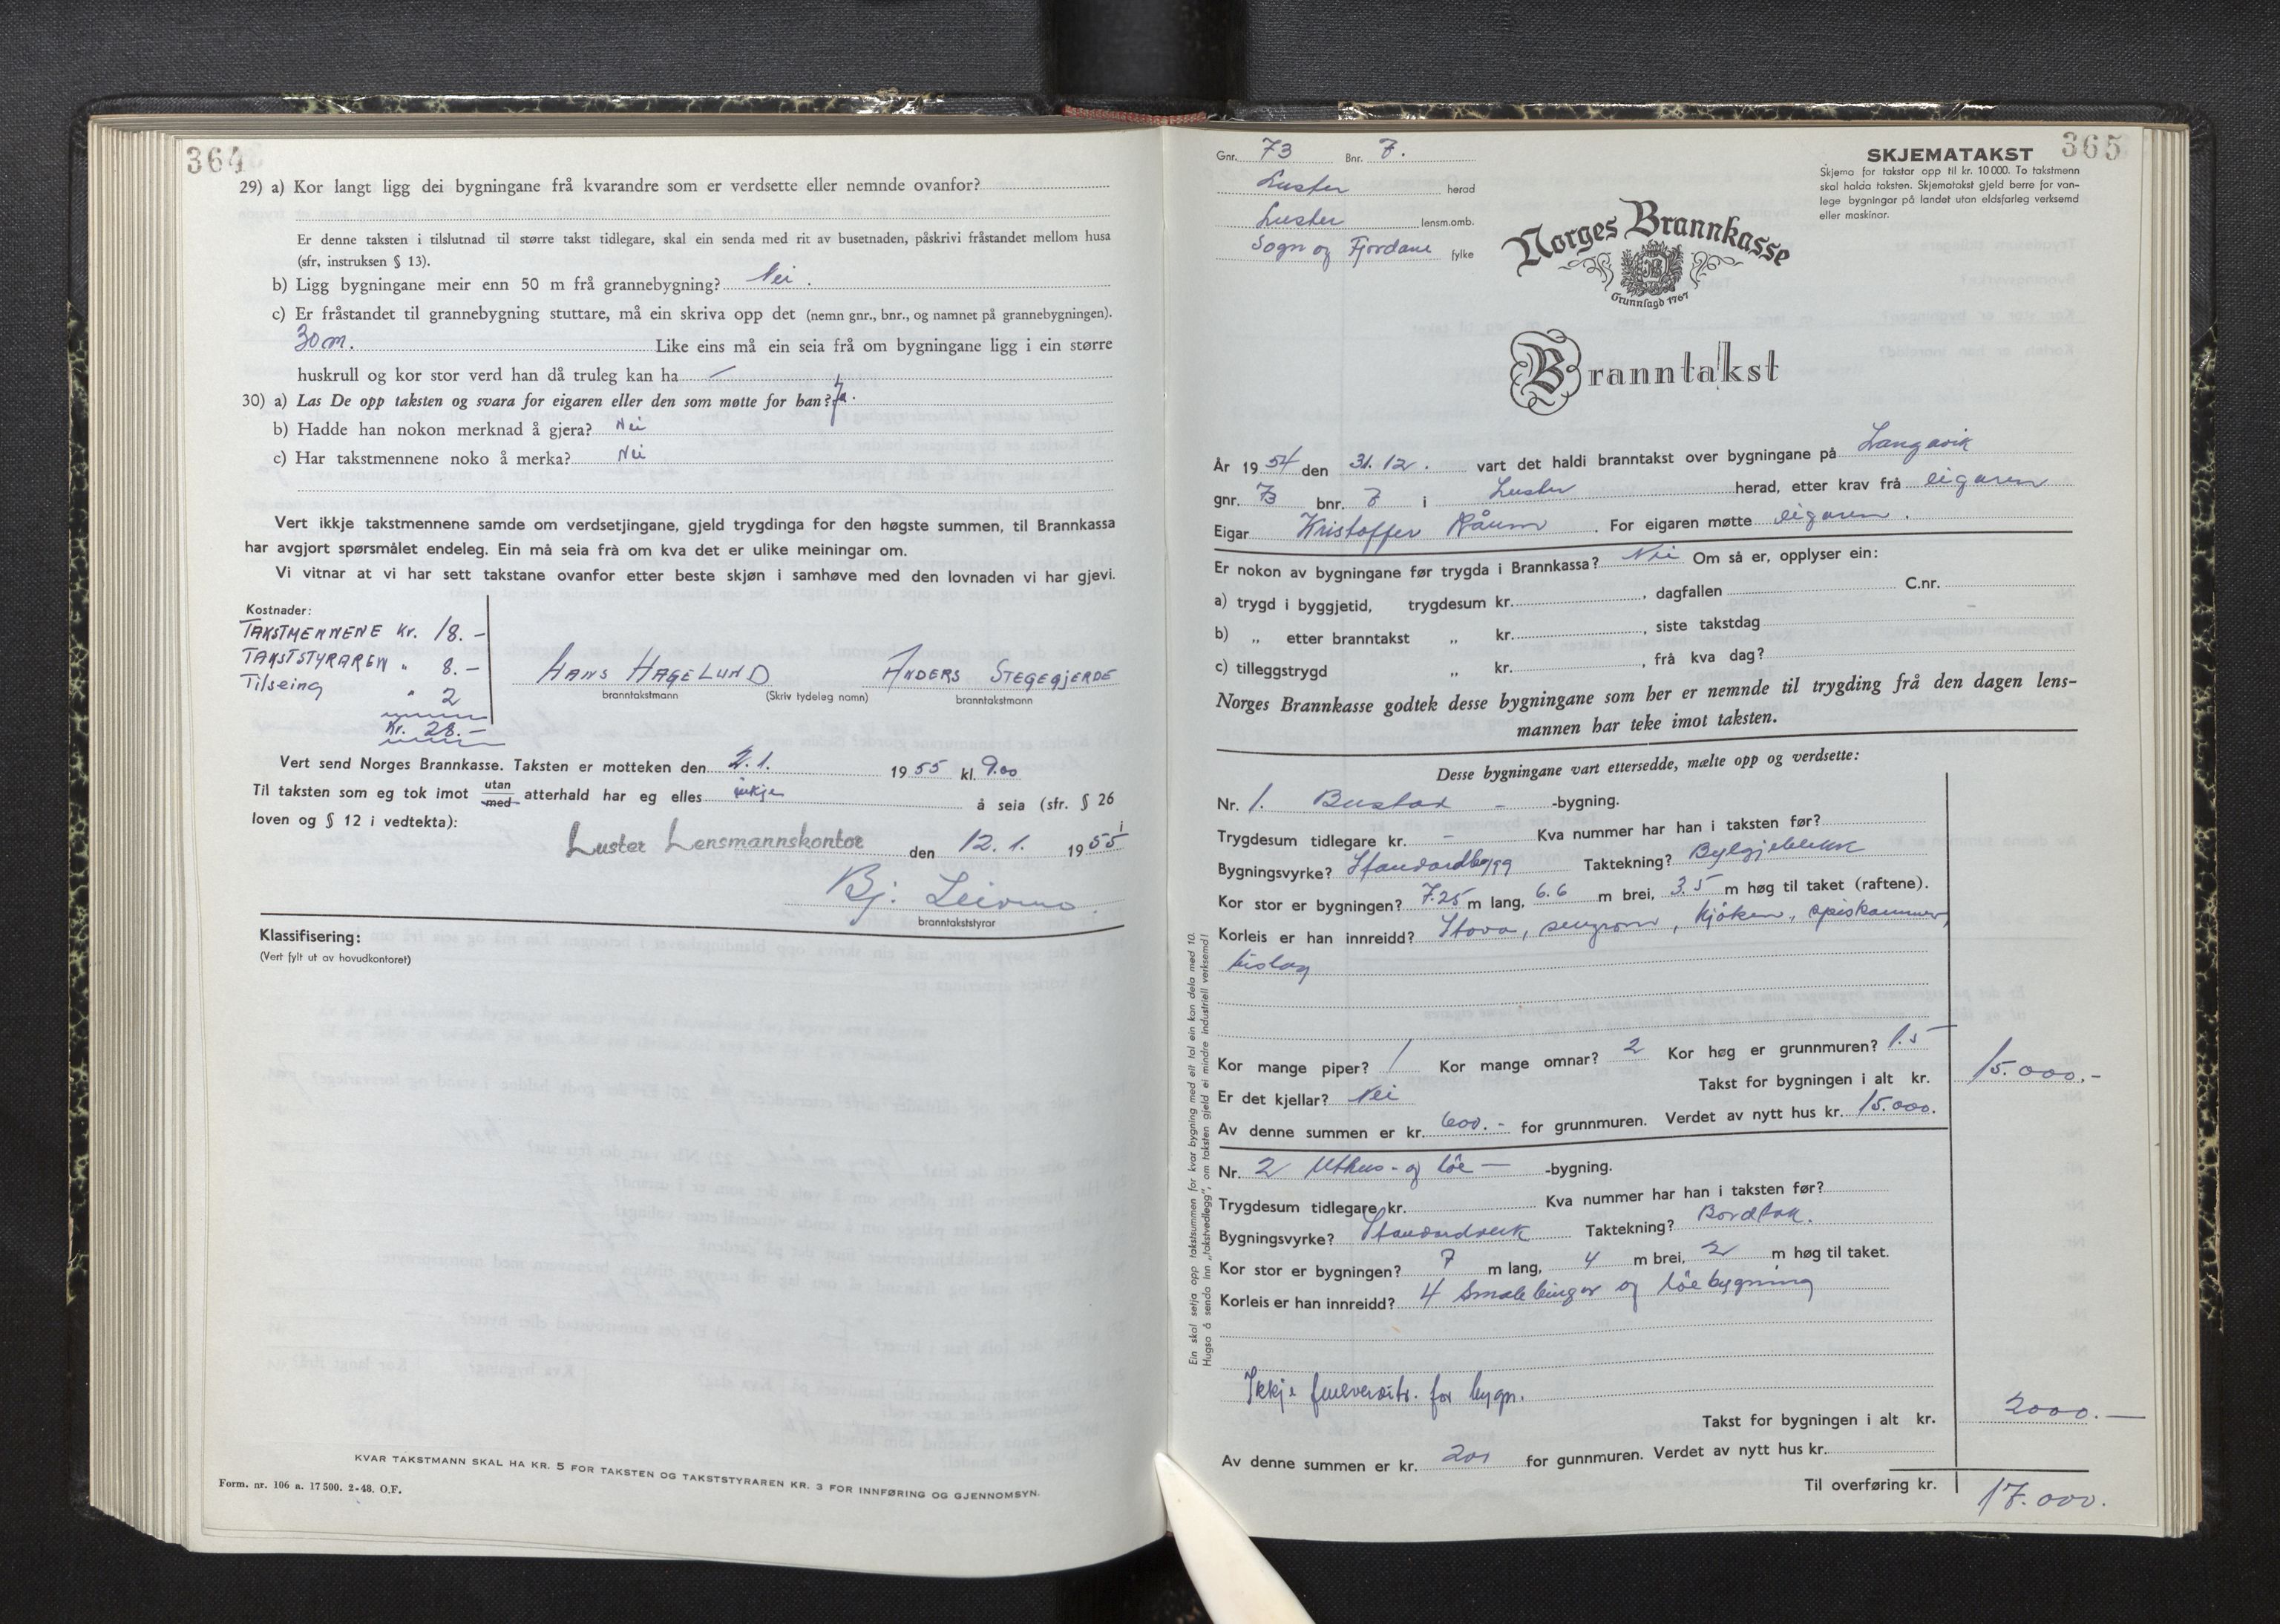 364
29) a) Kor langt ligg dei bygningane frå kvarandre som er verdsette eller nemnde ovanfor?
Er denne taksten i tilslutnad til større takst tidlegare, skal ein senda med rit av busetnaden, påskrivi fråstandet mellom husa
(sfr, instruksen § 13).
b) Ligg bygningane meir enn 50 m frå grannebygning? Nei.
c) Er fråstandet til grannebygning stuttare, må ein skriva opp det (nemn gnr., bnr., og namnet på grannebygningen).
30m. Like eins må ein seia frå om bygningane ligg i ein større
huskrull og kor stor verd han då truleg kan ha —
30) a) Las De opp taksten og svara for eigaren eller den som møtte for han? Ja.
b) Hadde han nokon merknad å gjera? Nei
c) Har takstmennene noko å merka? Nei
Vert ikkje takstmennene samde om verdsetjingane, gjeld trygdinga for den høgste summen, til Brannkassa
har avgjort spørsmålet endeleg. Ein må seia frå om kva det er ulike meiningar om.
Vi vitnar at vi har sett takstane ovanfor etter beste skjøn i samhøve med den lovnaden vi har gjevi.
Kostnader:
TAKSTMENNENE Kr. 18.-
TAKSTSTYRAREN " 8.-
Tilseing " 2
Kr. 28.-
HANS HAGELUND ANDERS STEGEGJERDE
branntakstmann (Skriv tydeleg namn) branntakstmann
Vert send Norges Brannkasse. Taksten er motteken den 2.1. 1955 kl. 9.00
Til taksten som eg tok imot utan/med atterhald har eg elles inkje å seia (sfr. § 26
loven og § 12 i vedtekta):
Luster Lensmannskontor den 12.1. 1955
Bj. Leirmo
branntakststyrar
Klassifisering:
(Vert fylt ut av hovudkontoret)
KVAR TAKSTMANN SKAL HA KR. 5 FOR TAKSTEN OG TAKSTSTYRAREN KR. 3 FOR INNFØRING OG GJENNOMSYN.
Form. nr. 106 a. 17 500. 2-48. O.F.
365
Gnr. 73 Bnr. 7.
Luster herad
Luster lensm.omb.
Sogn og Fjordane fylke
SKJEMATAKST
Skjema for takstar opp til kr. 10 000. To takstmenn
skal halda taksten. Skjematakst gjeld berre for van-
lege bygningar på landet utan eldsfarleg verksemd
eller maskinar.
Norges Brannkasse
Grunnlagd 1767
Branntakst
År 1954 den 31.12. vart det haldi branntakst over bygningane på Langavik
gnr. 73 bnr. 7 i Luster herad, etter krav frå eigaren
Eigar Kristoffer Råum. For eigaren møtte eigaren.
Er nokon av bygningane før trygda i Brannkassa? Nei Om så er, opplyser ein:
a) trygd i byggjetid, trygdesum kr. , dagfallen C.nr.
b) „ etter branntakst „ kr. , siste takstdag
c) tilleggstrygd „ kr. , frå kva dag?
Norges Brannkasse godtek desse bygningane som her er nemnde til trygding frå den dagen lens-
mannen har teke imot taksten.
Desse bygningane vart ettersedde, mælte opp og verdsette:
Nr. 1. Bustad - -bygning.
Trygdesum tidlegare kr. - Kva nummer har han i taksten før?
Bygningsvyrke? Standardbygg Taktekning? Bylgjeblekk
Kor stor er bygningen? 7.25 m lang, 6.6 m brei, 3.5 m høg til taket (raftene).
Korleis er han innreidd? Stova, sengrom, kjøken, spiskammer,
bislag
Kor mange piper? 1 Kor mange omnar? 2 Kor høg er grunnmuren? 1.5
Er det kjellar? Nei Takst for bygningen i alt kr. 15.000.-
Av denne summen er kr. 600.- for grunnmuren. Verdet av nytt hus kr. 15.000.
Nr. 2 Uthus- og löe - -bygning.
Trygdesum tidlegare kr. Kva nummer har han i taksten før?
Bygningsvyrke? Standardverk Taktekning? Bordtak.
Kor stor er bygningen? 7 m lang, 4 m brei, 2 m høg til taket.
Korleis er han innreidd? 4 Smalebingar og löebygning
Ikkje for bygn.
Takst for bygningen i alt kr. 2000.-
Av denne summen er kr. 200 for gunnmuren. Verdet av nytt hus kr.
Til overføring kr. 17.000.
Ein skal setja opp takstsummen for kvar bygning med eit tal ein kan dela med 10.
Hugsa å senda inn „takstvedlegg", om taksten gjeld ei mindre industriell verksemd!